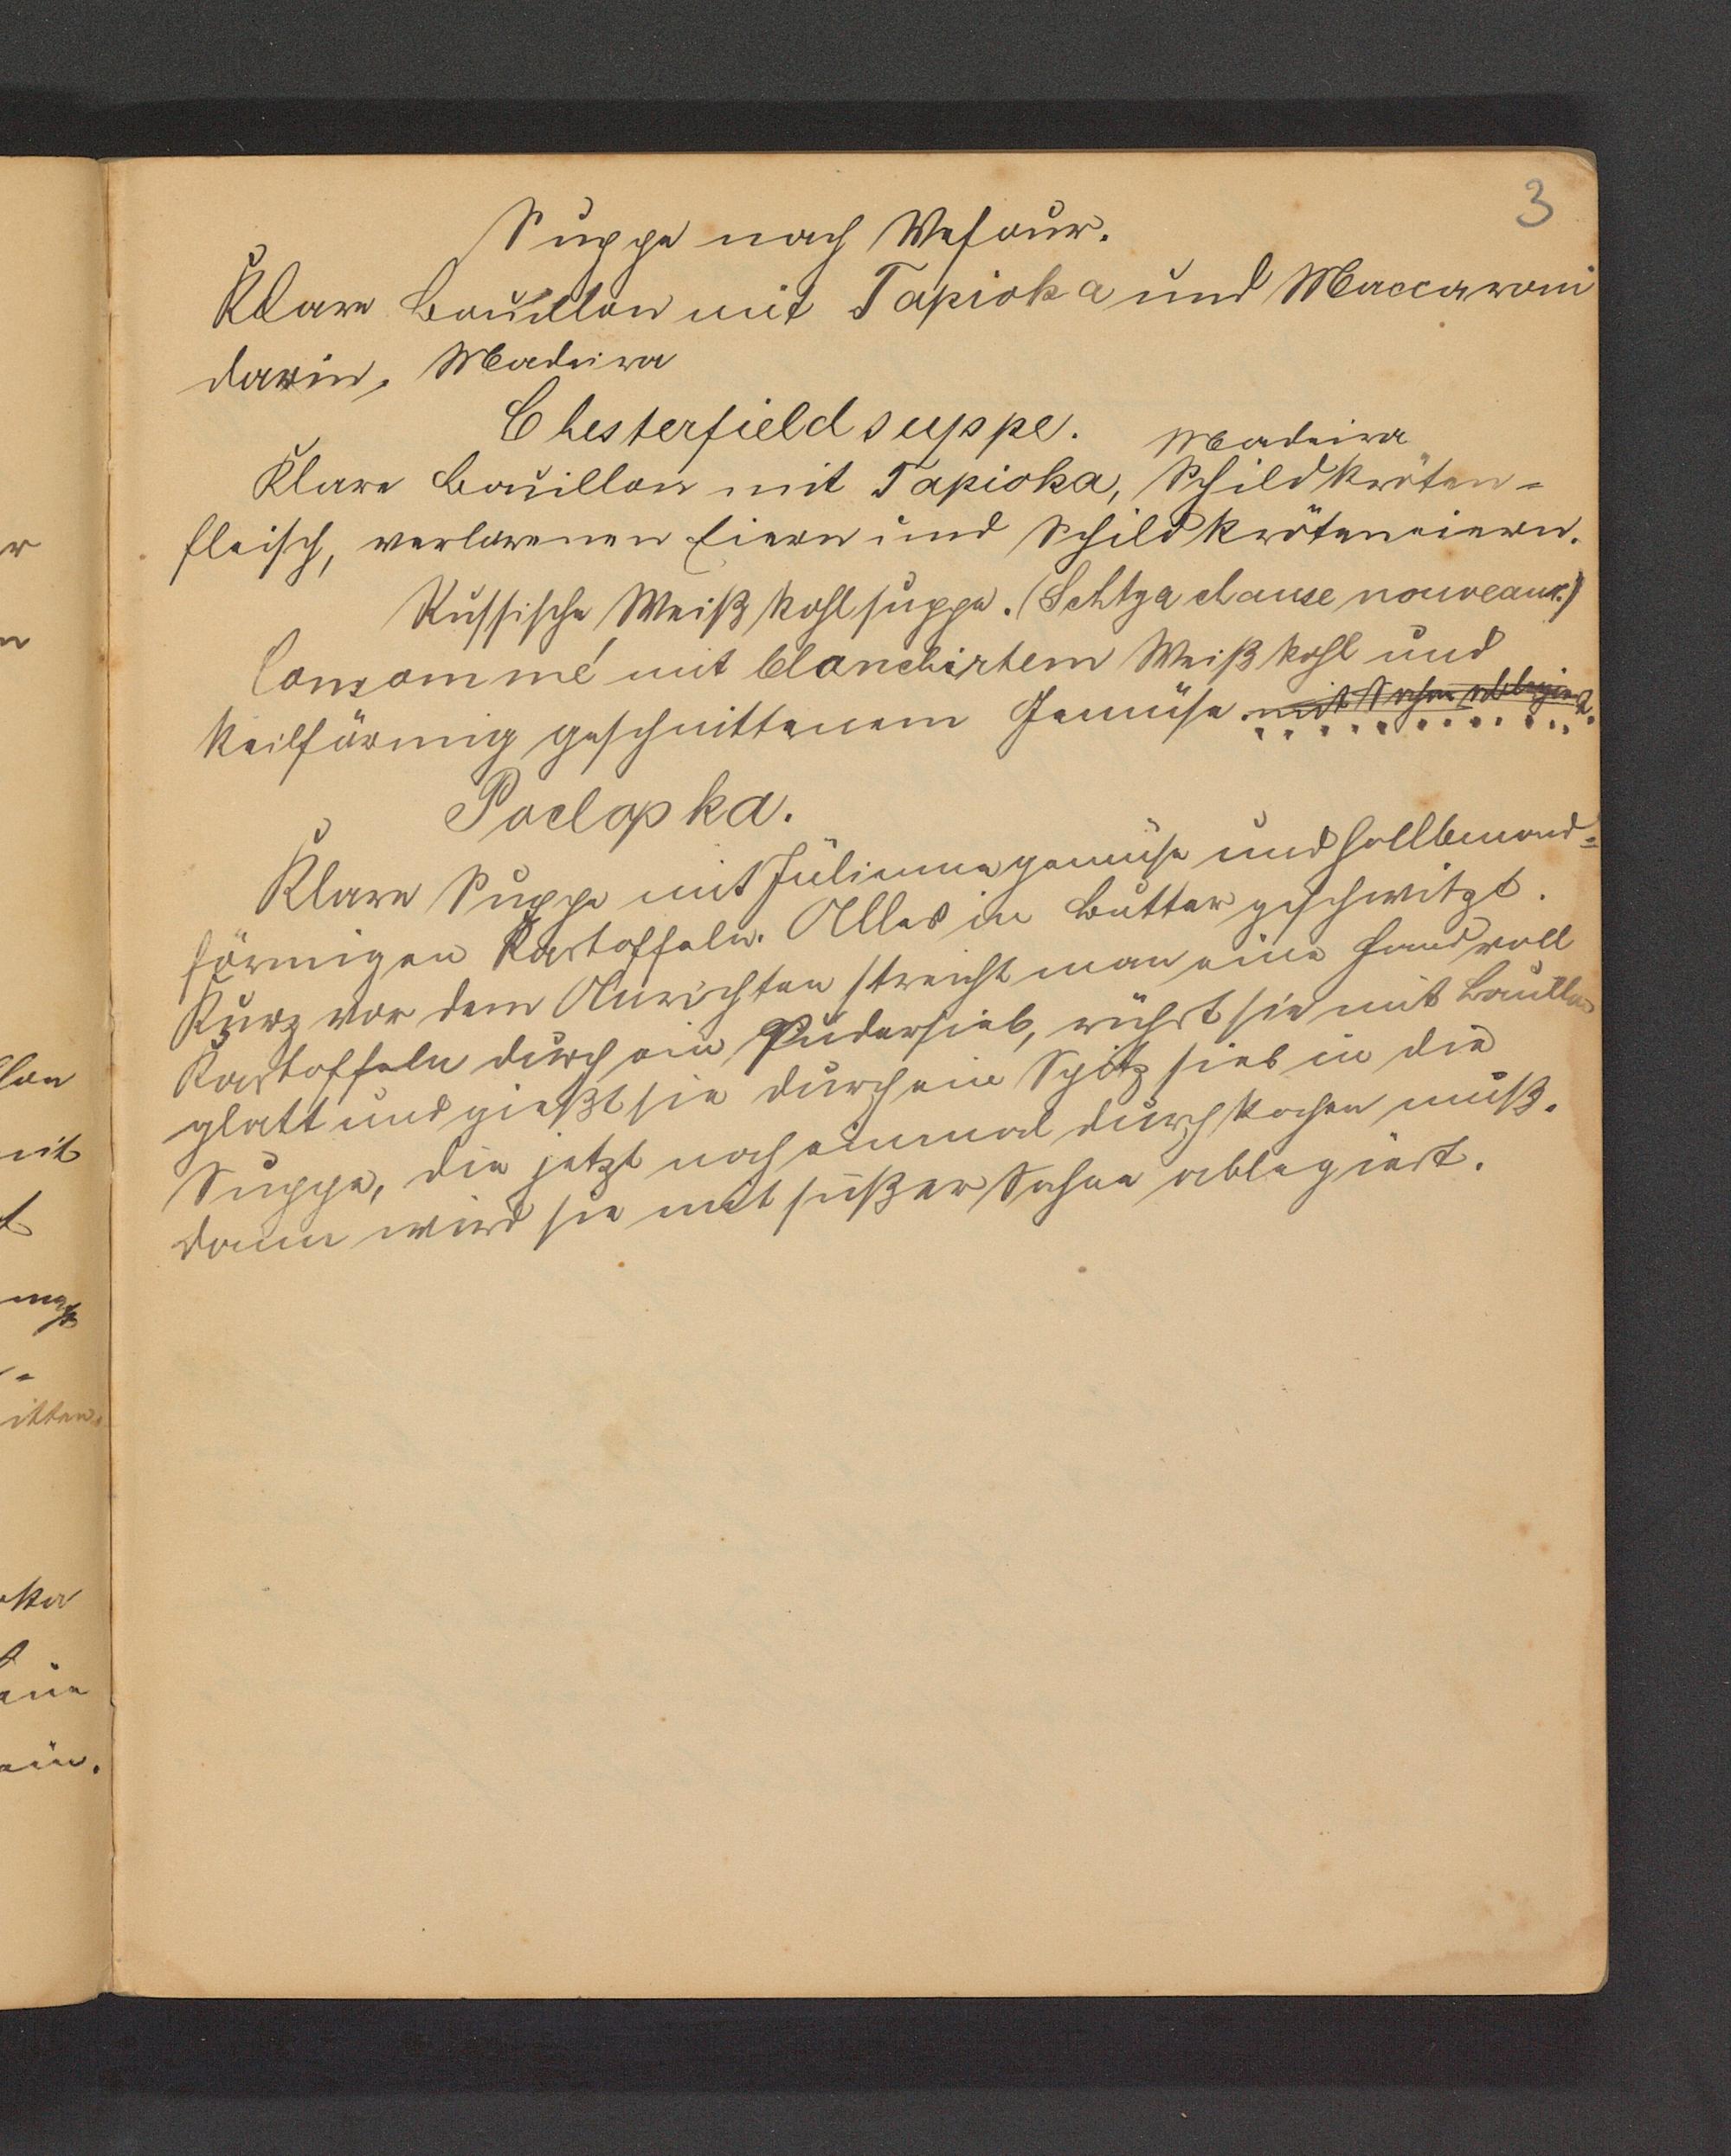 3
Suppe nach Vefour.
Klare Bouillon mit Tapioka und Maccaroni
darin. Madeira
Chesterfieldsuppe.
Madeira
Klare Bouillon mit Tapioka, Schildkröten-
fleisch, verlorenen Eiern und Schildkröteneiern.
Russische Weißkohlsuppe. (Schtza chause nouveaux.)
Consommé mit blanchirtem Weißkohl und
keilförmig geschnittenem Gemüse mit Sahne ablegiert.
Poclapka.
Klare Suppe mit Juliennegemüse und hallbmond-
förmigen Kartoffeln. Alles in Butter geschwitzt.
Kurz vor dem Anrichten streicht man eine Handvoll
Kartoffeln durch ein Pudersieb, rührt sie mit Bouillon
glatt und gießt sie durch ein Spitzsieb in die
Suppe, die jetzt noch einmal durchkochen muß.
dann wird sie mit süßer Sahne ablegiert.